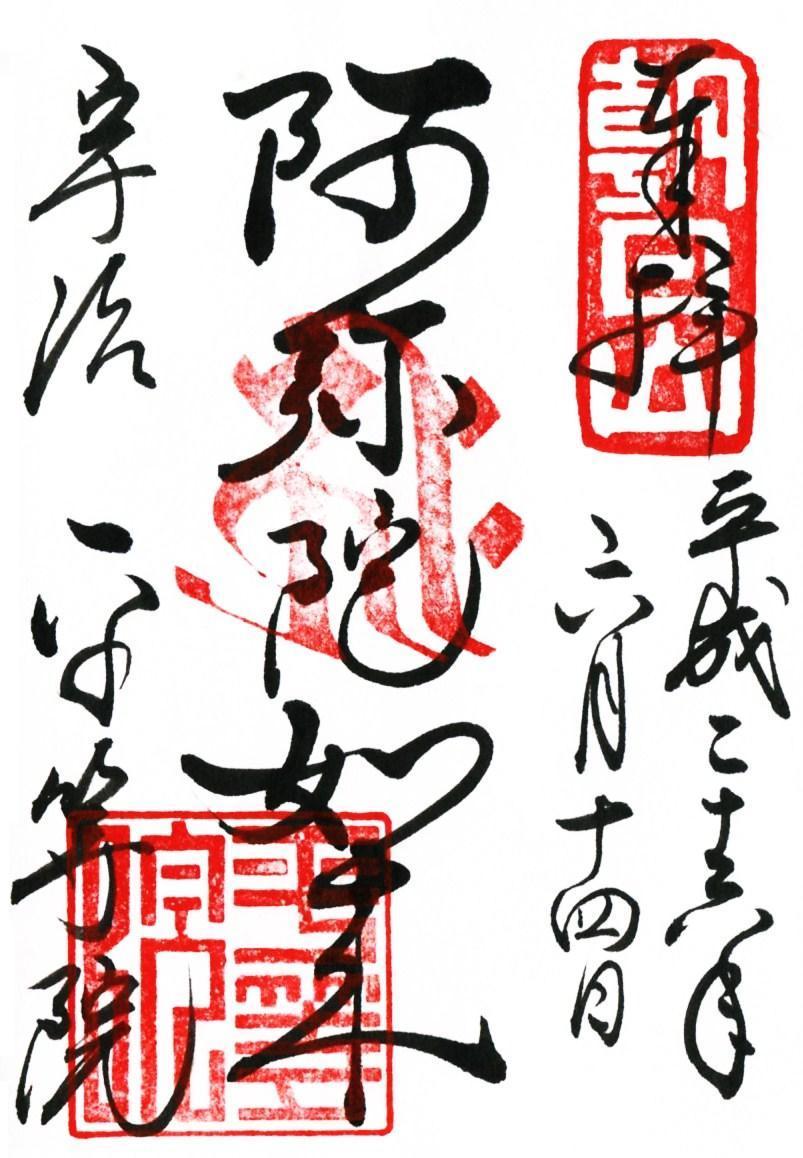 奉拝
朝日山
平成二十六年
六月十四日
阿弥陀如来
宇治
平等院